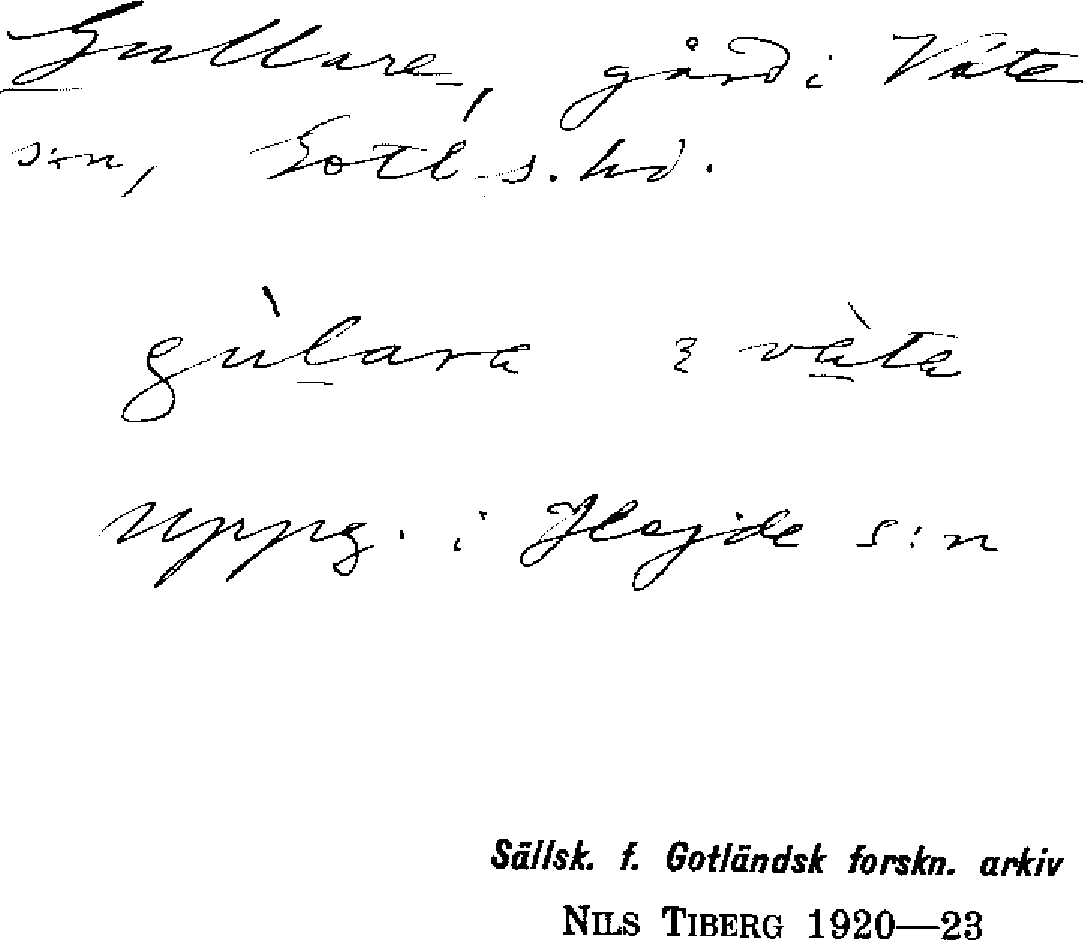 Gullare, gård i Väte
s:n, Gotl. s. hd.
gùlara ɩ vàta
Uppg. i Hejde s:n
Sällsk. f. Gotländsk forskn. arkiv
NILS TIBERG 1920—23